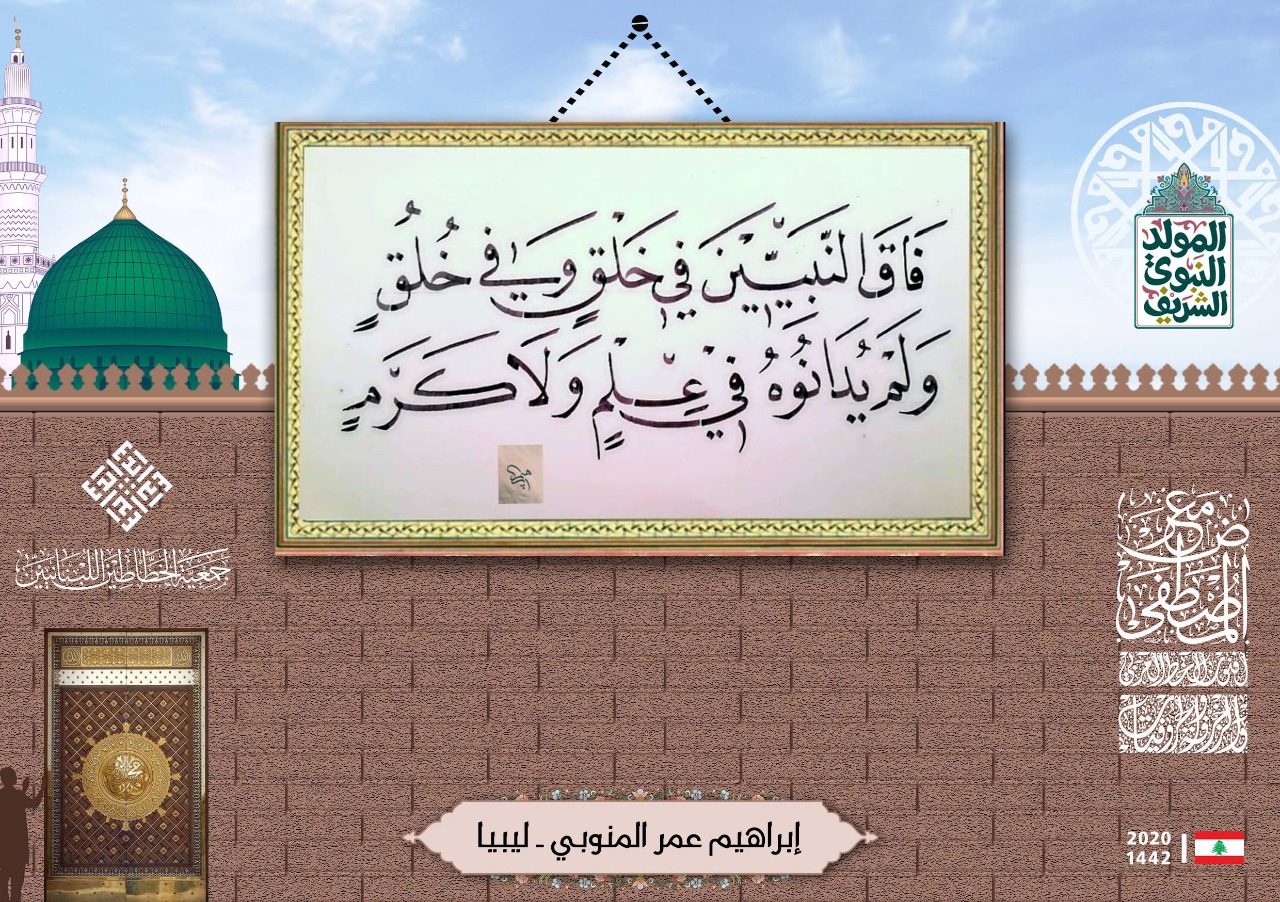 فَاقَ النَّبِيِّيْنَ فِي خَلْقٍ وَفِي خُلُقٍ
وَلَمْ يُدَانُوْهُ فِيْ عِلْمٍ وَلَا كَرَمٍ
المولد
النبوي
الشريف
جمعية الخطاطين اللبنانيين
معرض
المصطفى
إبراهيم عمر المنوبي - ليبيا
2020
1442